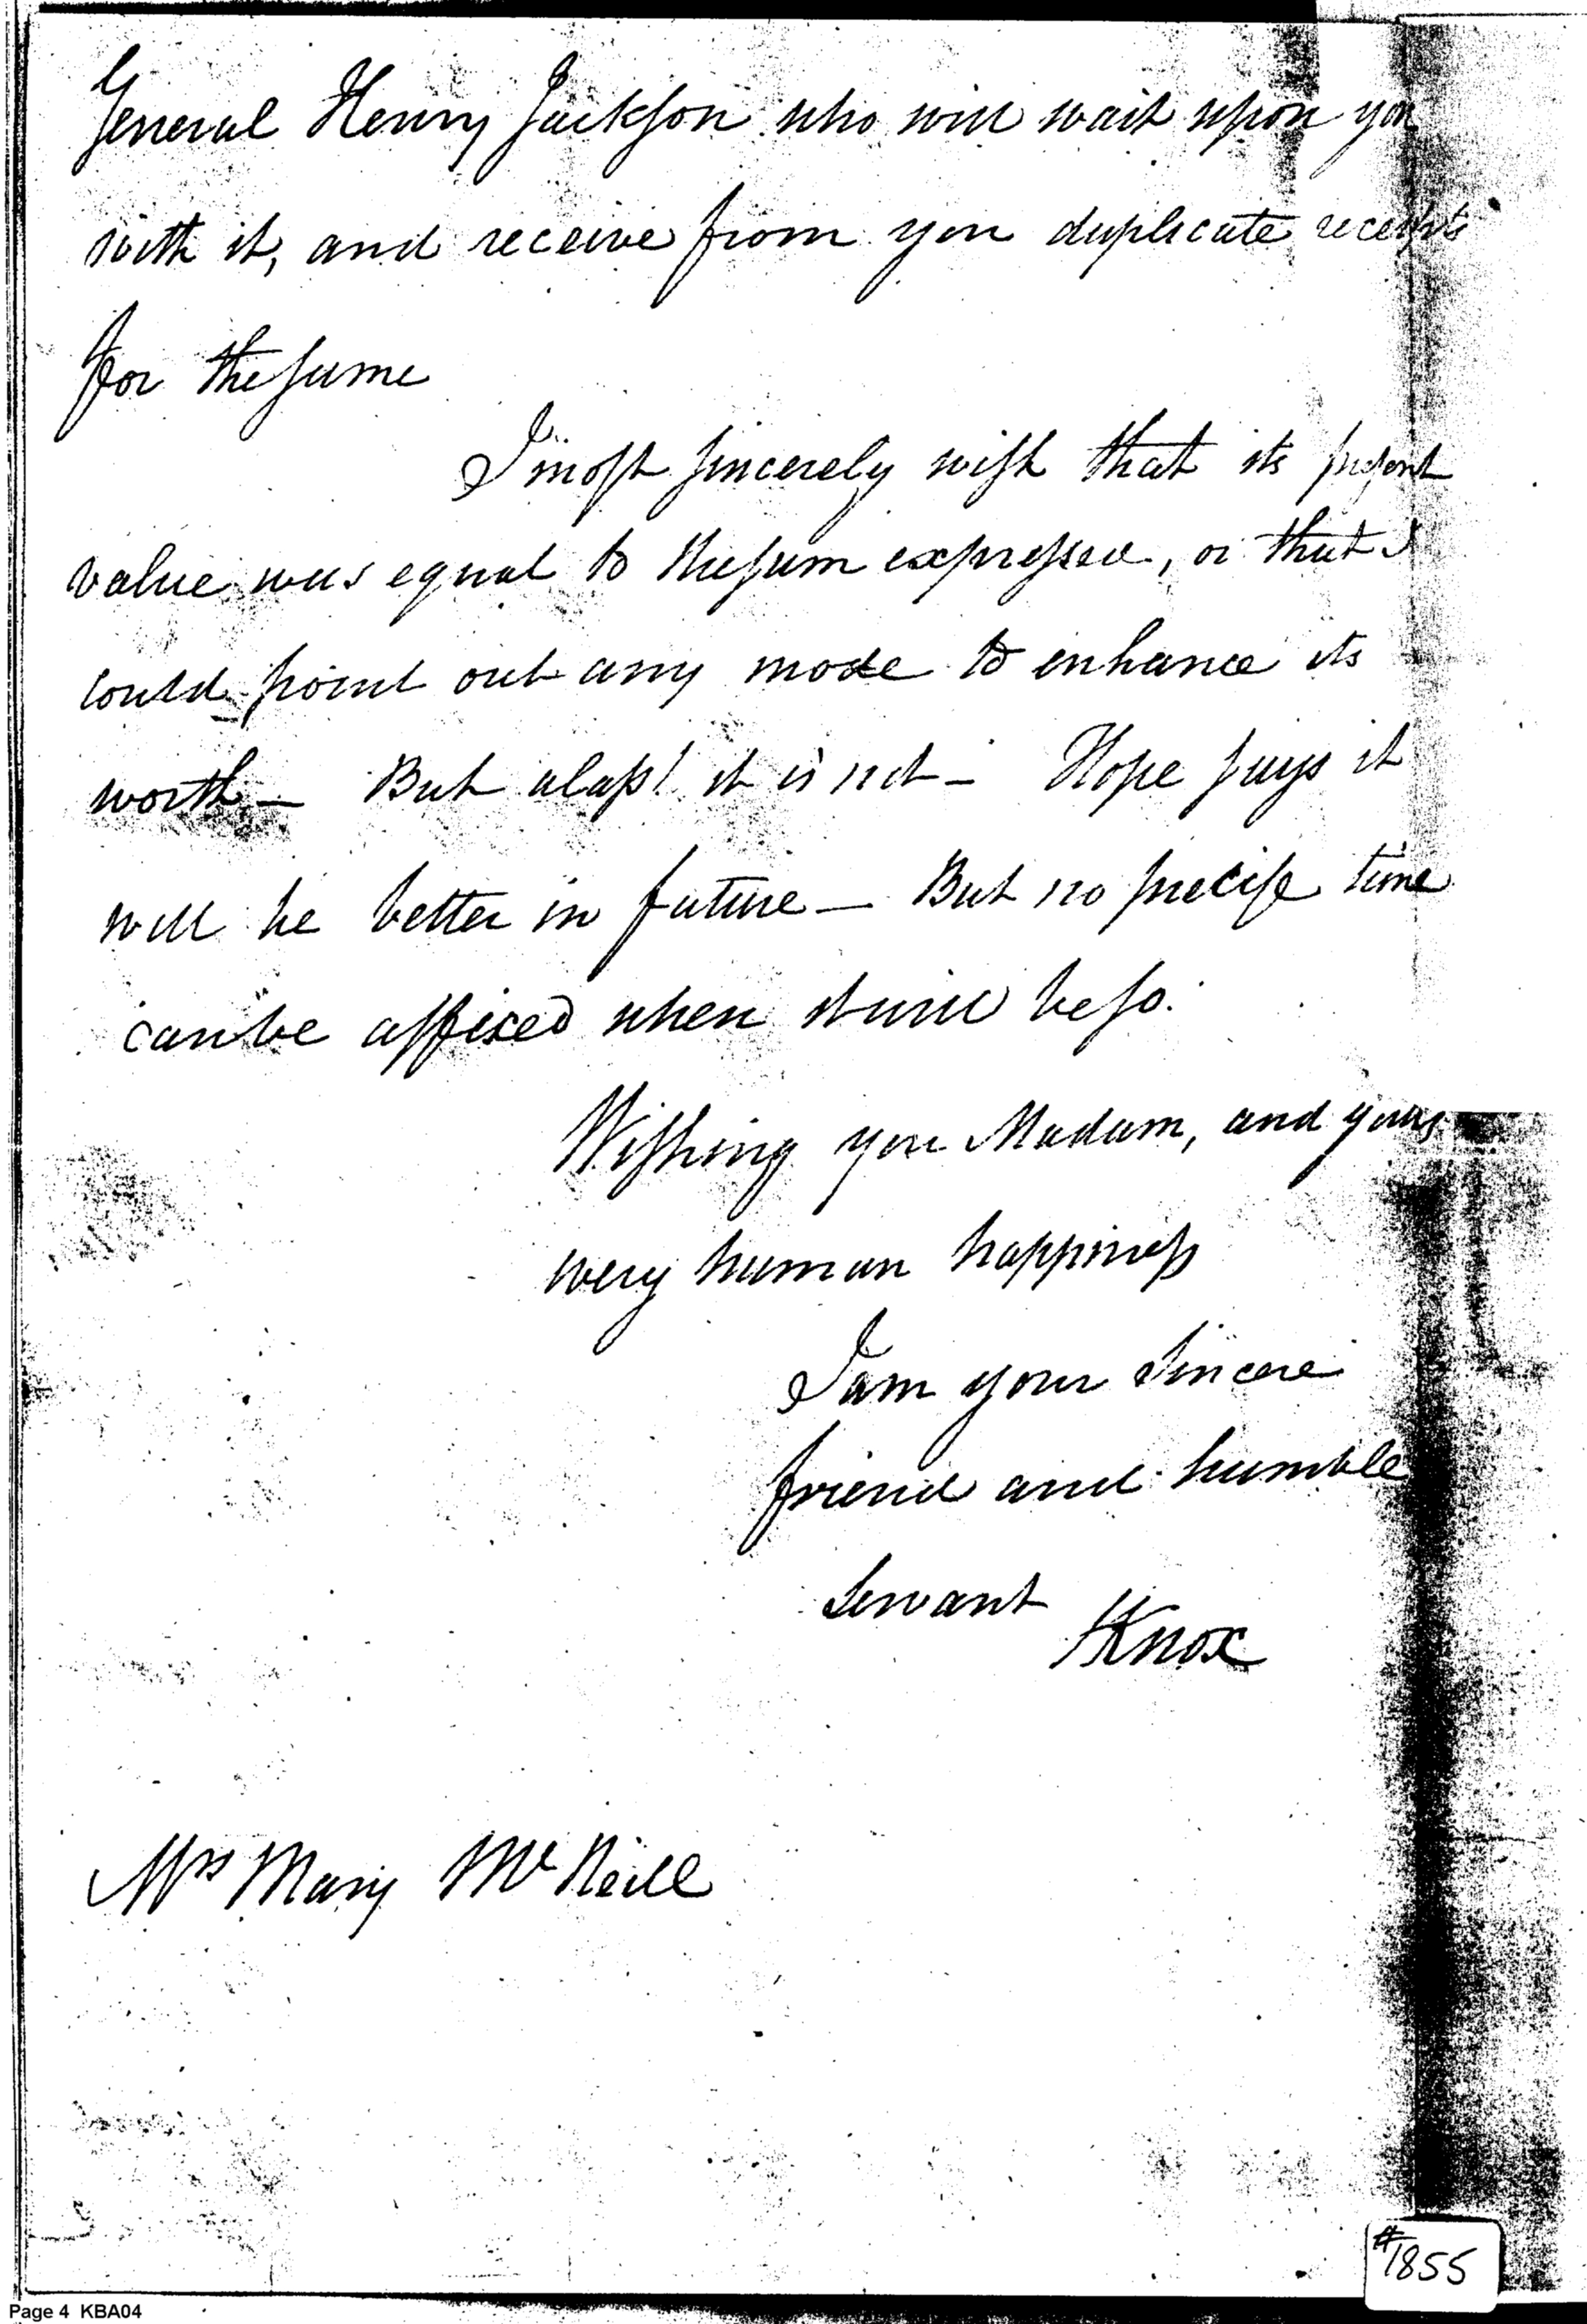 General Henry Jackson who will wait upon you
with it, and receive from you duplicate receipts
for the same
I most sincerely wish that its present
value was equal to the sum expressed, or that I
could point out any mode to enhance its
worth — But alass! it is not — Hope says it
will be better in future — But no precise time
can be affixed when it will be so.
Wishing you Madam, and yours
every human happiness
I am your sincere
friend and humble
Servant
HKnox
Mrs Mary McNeill
#1855
Page 4 KBA04